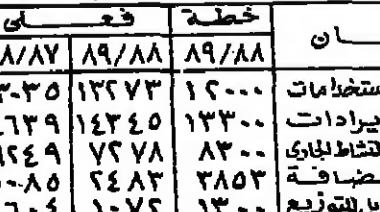 خطة فعلى
ان ٨٩/٨٨ ٨٩/٨٨ ٨/٨٧
ستخدامات ١٢٠٠٠ ١٣٢٧٣ ٣٠٣٥
يرادات ١٣٣٠٠ ١٤٣٤٥ ٦٣٩
لنشاط الجارى ٨٣٠٠ ٧٢٧٨ ٢٤٩
ضافة ٣٨٥٣ ٢٤٨٣ ٠٠٨٥
للتوزيع ١٣٠٠ ١٠٧٢ ٦٠٤